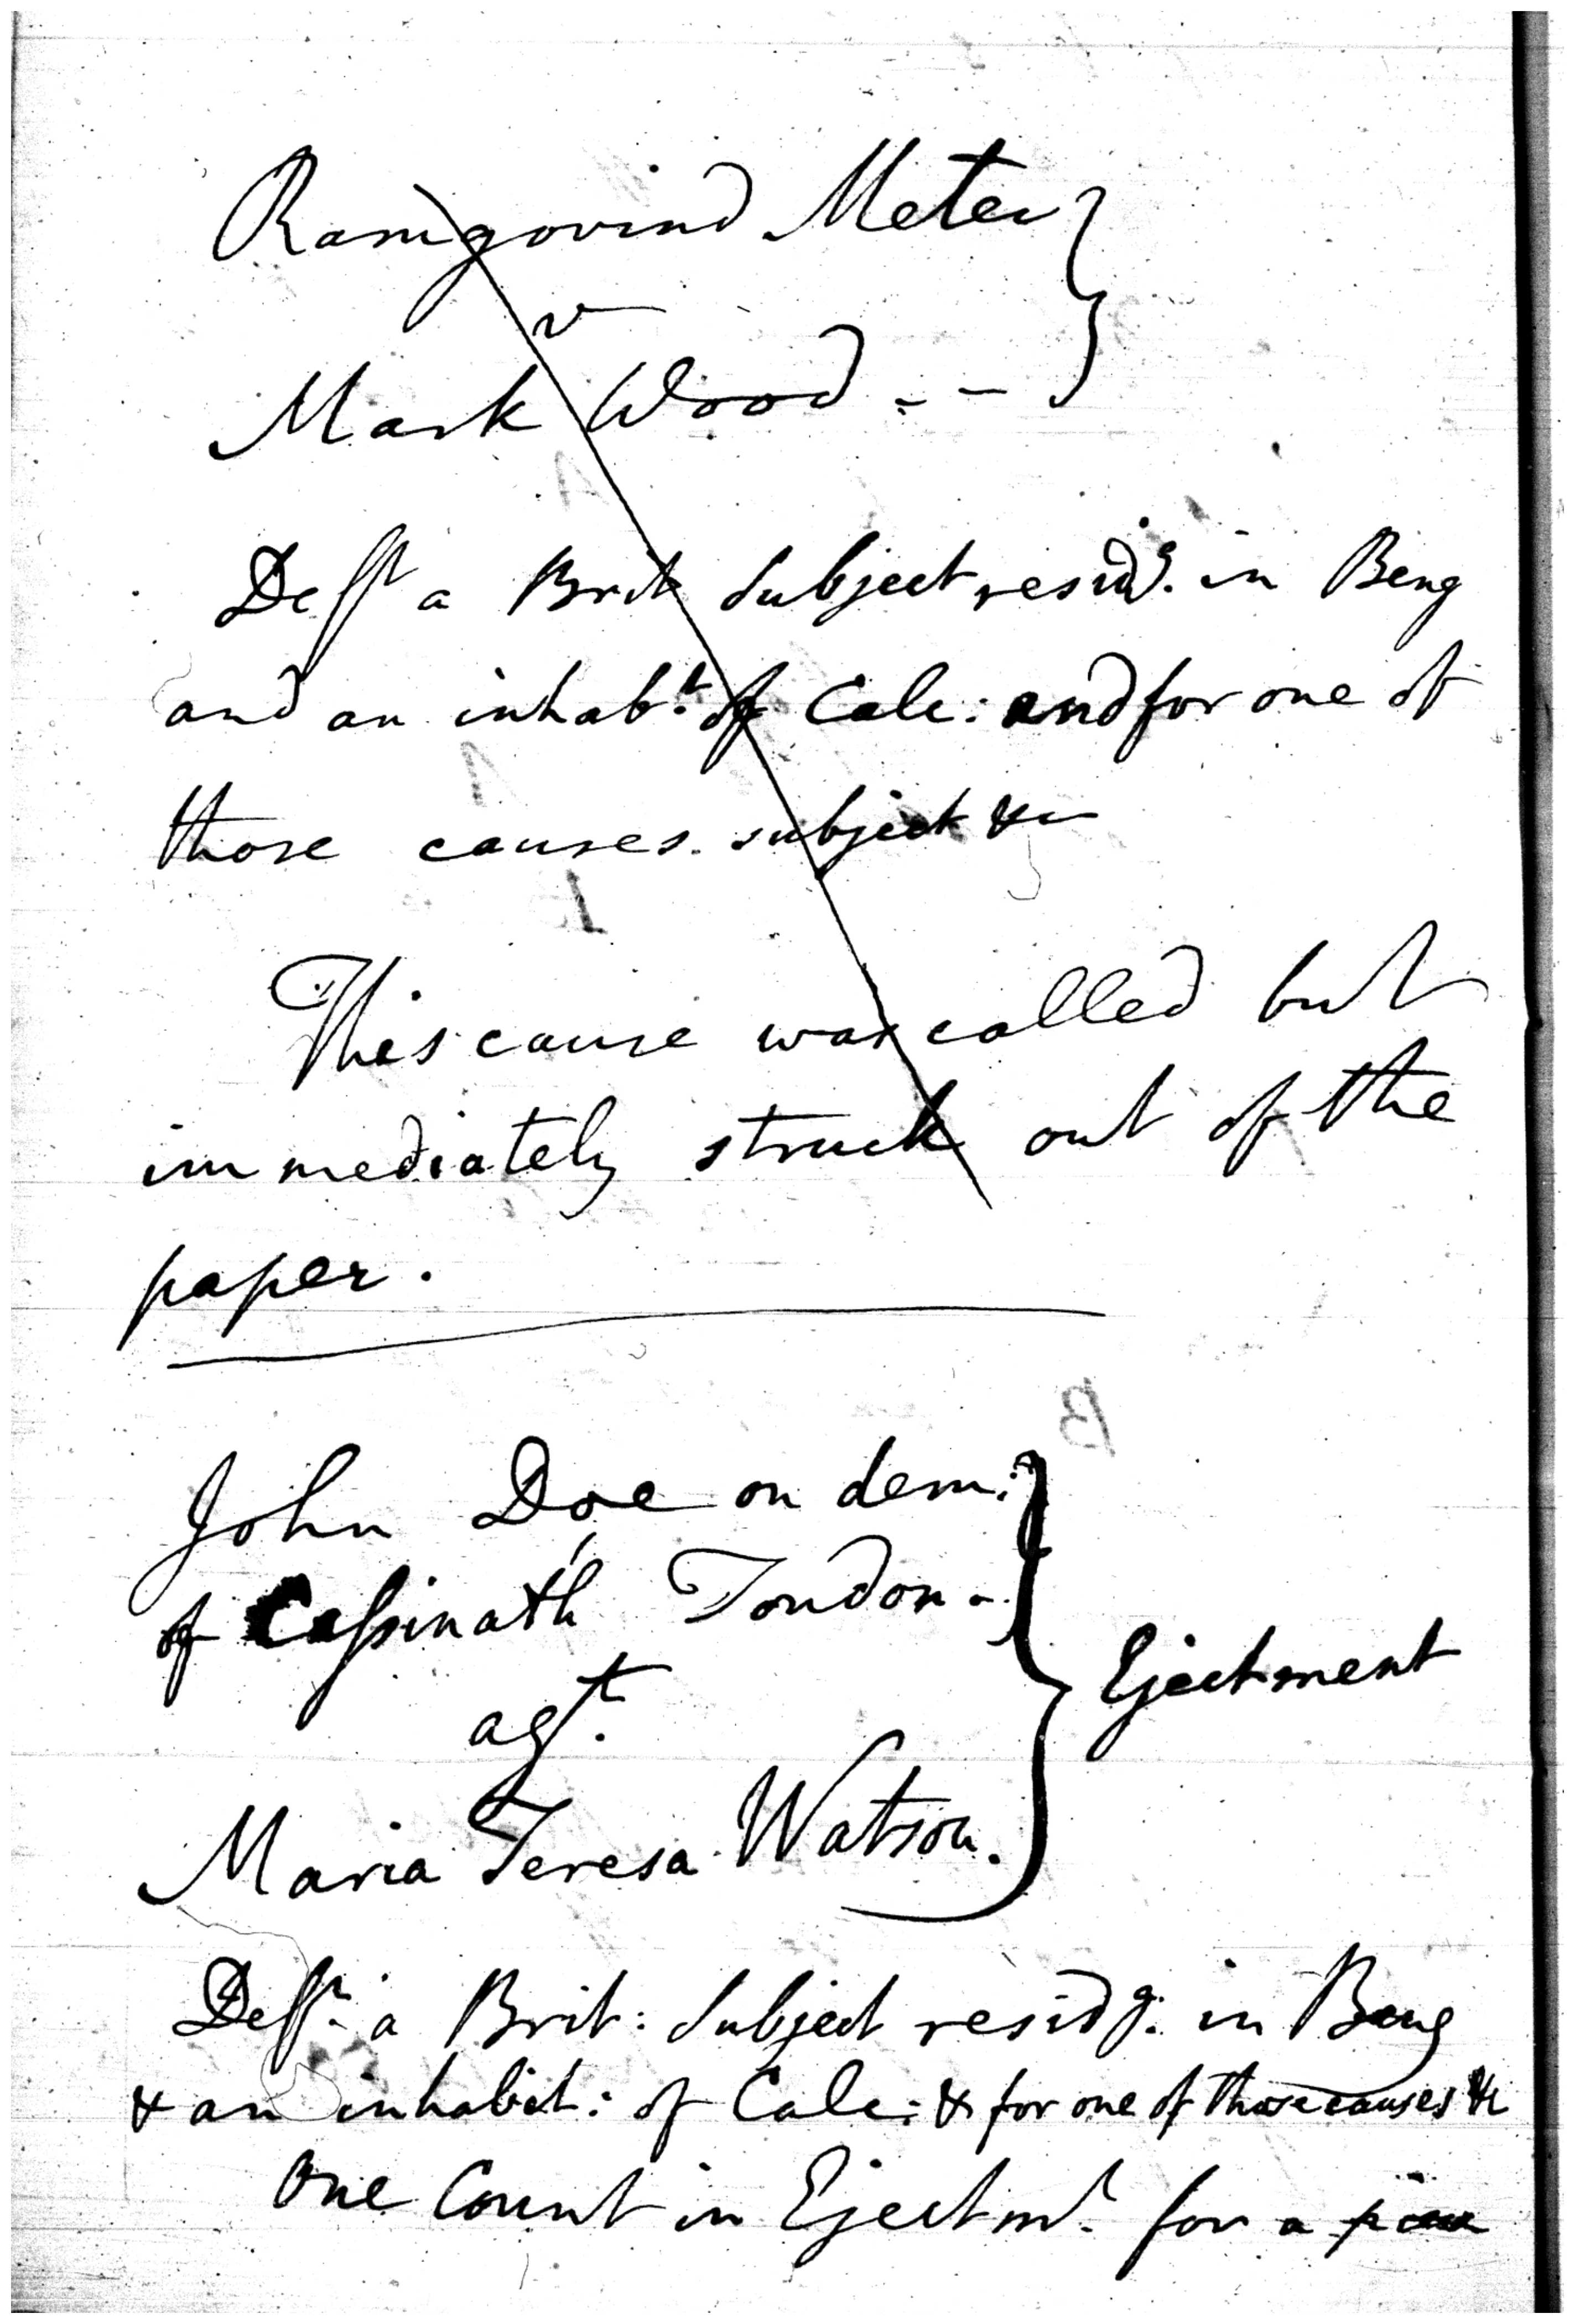 Ramgovind Meter
v
Mark Wood - -
Defft a Brit Subject residg. in Beng
and an inhabt. of Calc: and for one of
those causes subject &c
This cause was called but
immediately struck out of the
paper.
John Doe on dem:
of Cassinath Tondon -
agt.
Ejectment
Maria Teresa Watson.
Defft. a Brit: Subject residg. in Beng
& an inhabit: of Calc: & for one of those causes &c
One Count in Ejectmt. for a